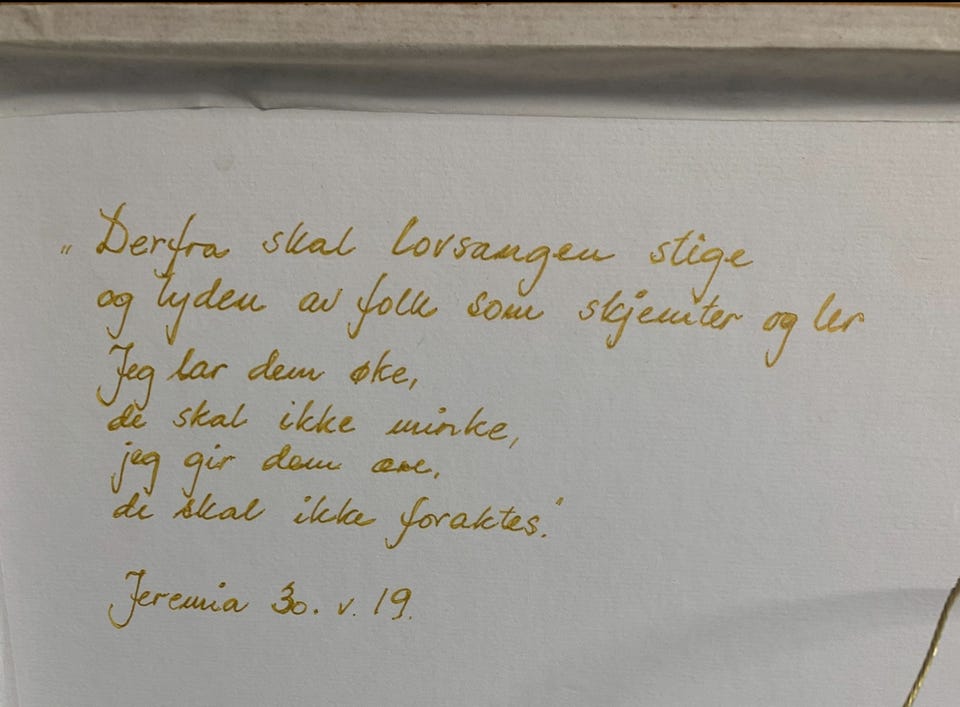 „Derfra skal lovsangen stige
og lyden av folk som skjemter og ler
Jeg lar dem øke,
de skal ikke minke,
jeg gir dem ære,
de skal ikke foraktes."
Jeremia 30. v. 19.